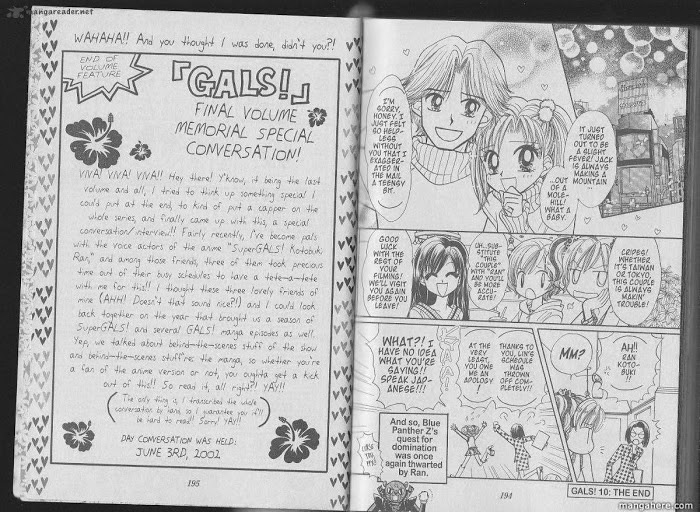 mangareader.net
WAHAHA!! And you thought I was done, didn't you?!
END OF
VOLUME
FEATURE
「GALS!」
FINAL VOLUME
MEMORIAL SPECIAL
CONVERSATION!
VIVA! VIVA! VIVA!! Hey there! Y'know, it being the last
volume and all, I tried to think up something special I
could put at the end, to kind of put a capper on the
whole series, and finally came up with this, a special
conversation/interview!! Fairly recently, I've become pals
with the voice actors of the anime "SuperGALS! Kotobuki
Ran," and among those friends, three of them took precious
time out of their busy schedules to have a tete-a-tete
with me for this!! I thought these three lovely friends of
mine (AHH! Doesn't that sound nice?!) and I could look
back together on the year that brought us a season of
SuperGALS! and several GALS! manga episodes as well.
Yep, we talked about behind-the-scenes stuff of the show
and behind-the-scenes stuff're the manga, so whether you're
a fan of the anime version or not, you oughta get a kick
out of this!! So read it, all right?! YAY!!
The only thing is, I transcribed the whole
conversation by hand, so I guarantee you it'll
be hard to read!! Sorry! YAY!!
DAY CONVERSATION WAS HELD:
JUNE 3RD, 2002
195
IT JUST
TURNED
OUT TO BE
A SLIGHT
FEVER! JACK
IS ALWAYS
MAKING A
MOUNTAIN
...OUT
OF A
MOLE-
HILL!
WHAT A
BABY.
I'M
SORRY,
HONEY. I
JUST FELT
SO HELP-
LESS
WITHOUT
YOU THAT I
EXAGGER-
ATED IN
THE MAIL
A TEENGY
BIT.
CRIPES!
WHETHER
IT'S TAIWAN
OR TOKYO,
THIS COUPLE
IS ALWAYS
MAKIN'
TROUBLE!
UH...SUB-
STITUTE
"THIS
COUPLE"
WITH "RAN"
AND YOU'LL
BE MORE
ACCU-
RATE!
GOOD
LUCK
WITH THE
REST OF
YOUR
FILMING!
WE'LL VISIT
YOU AGAIN
BEFORE YOU
LEAVE!
AH!!
RAN
KOTO-
BUKI
!!
MM?
THANKS TO
YOU, LIN'S
SCHEDULE
WAS
THROWN
OFF COM-
PLETELY!!
AT THE
VERY
LEAST,
YOU OWE
ME AN
APOLOGY
!
WHAT?! I
HAVE NO IDEA
WHAT YOU'RE
SAYING!!
SPEAK JAP-
ANESE!!!
And so, Blue
Panther Z's
quest for
domination
was once
again thwarted
by Ran.
GALS! 10: THE END
194
mangahere.com